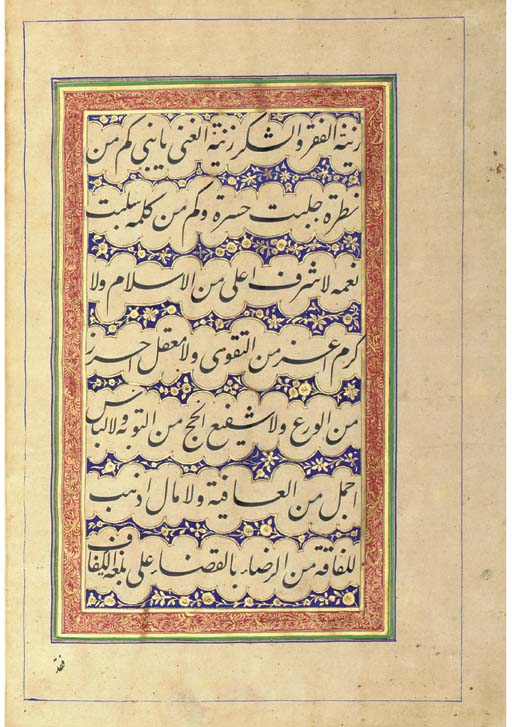 زينة الفقر والشكر زينة الغنى يا بنى كم من
نظرة جلبت حسرة وكم من كلمه سلبت
نعمه لا شرف اعلى من الاسلام ولا
كرم اعز من التقوى ولا معقل احرز
من الورع ولا شفيع انجح من التوبه ولا لباس
اجمل من العافية ولا مال اذهب
للفاقة من الرضاء بالقضاء على بلغه الكفاف
فقد